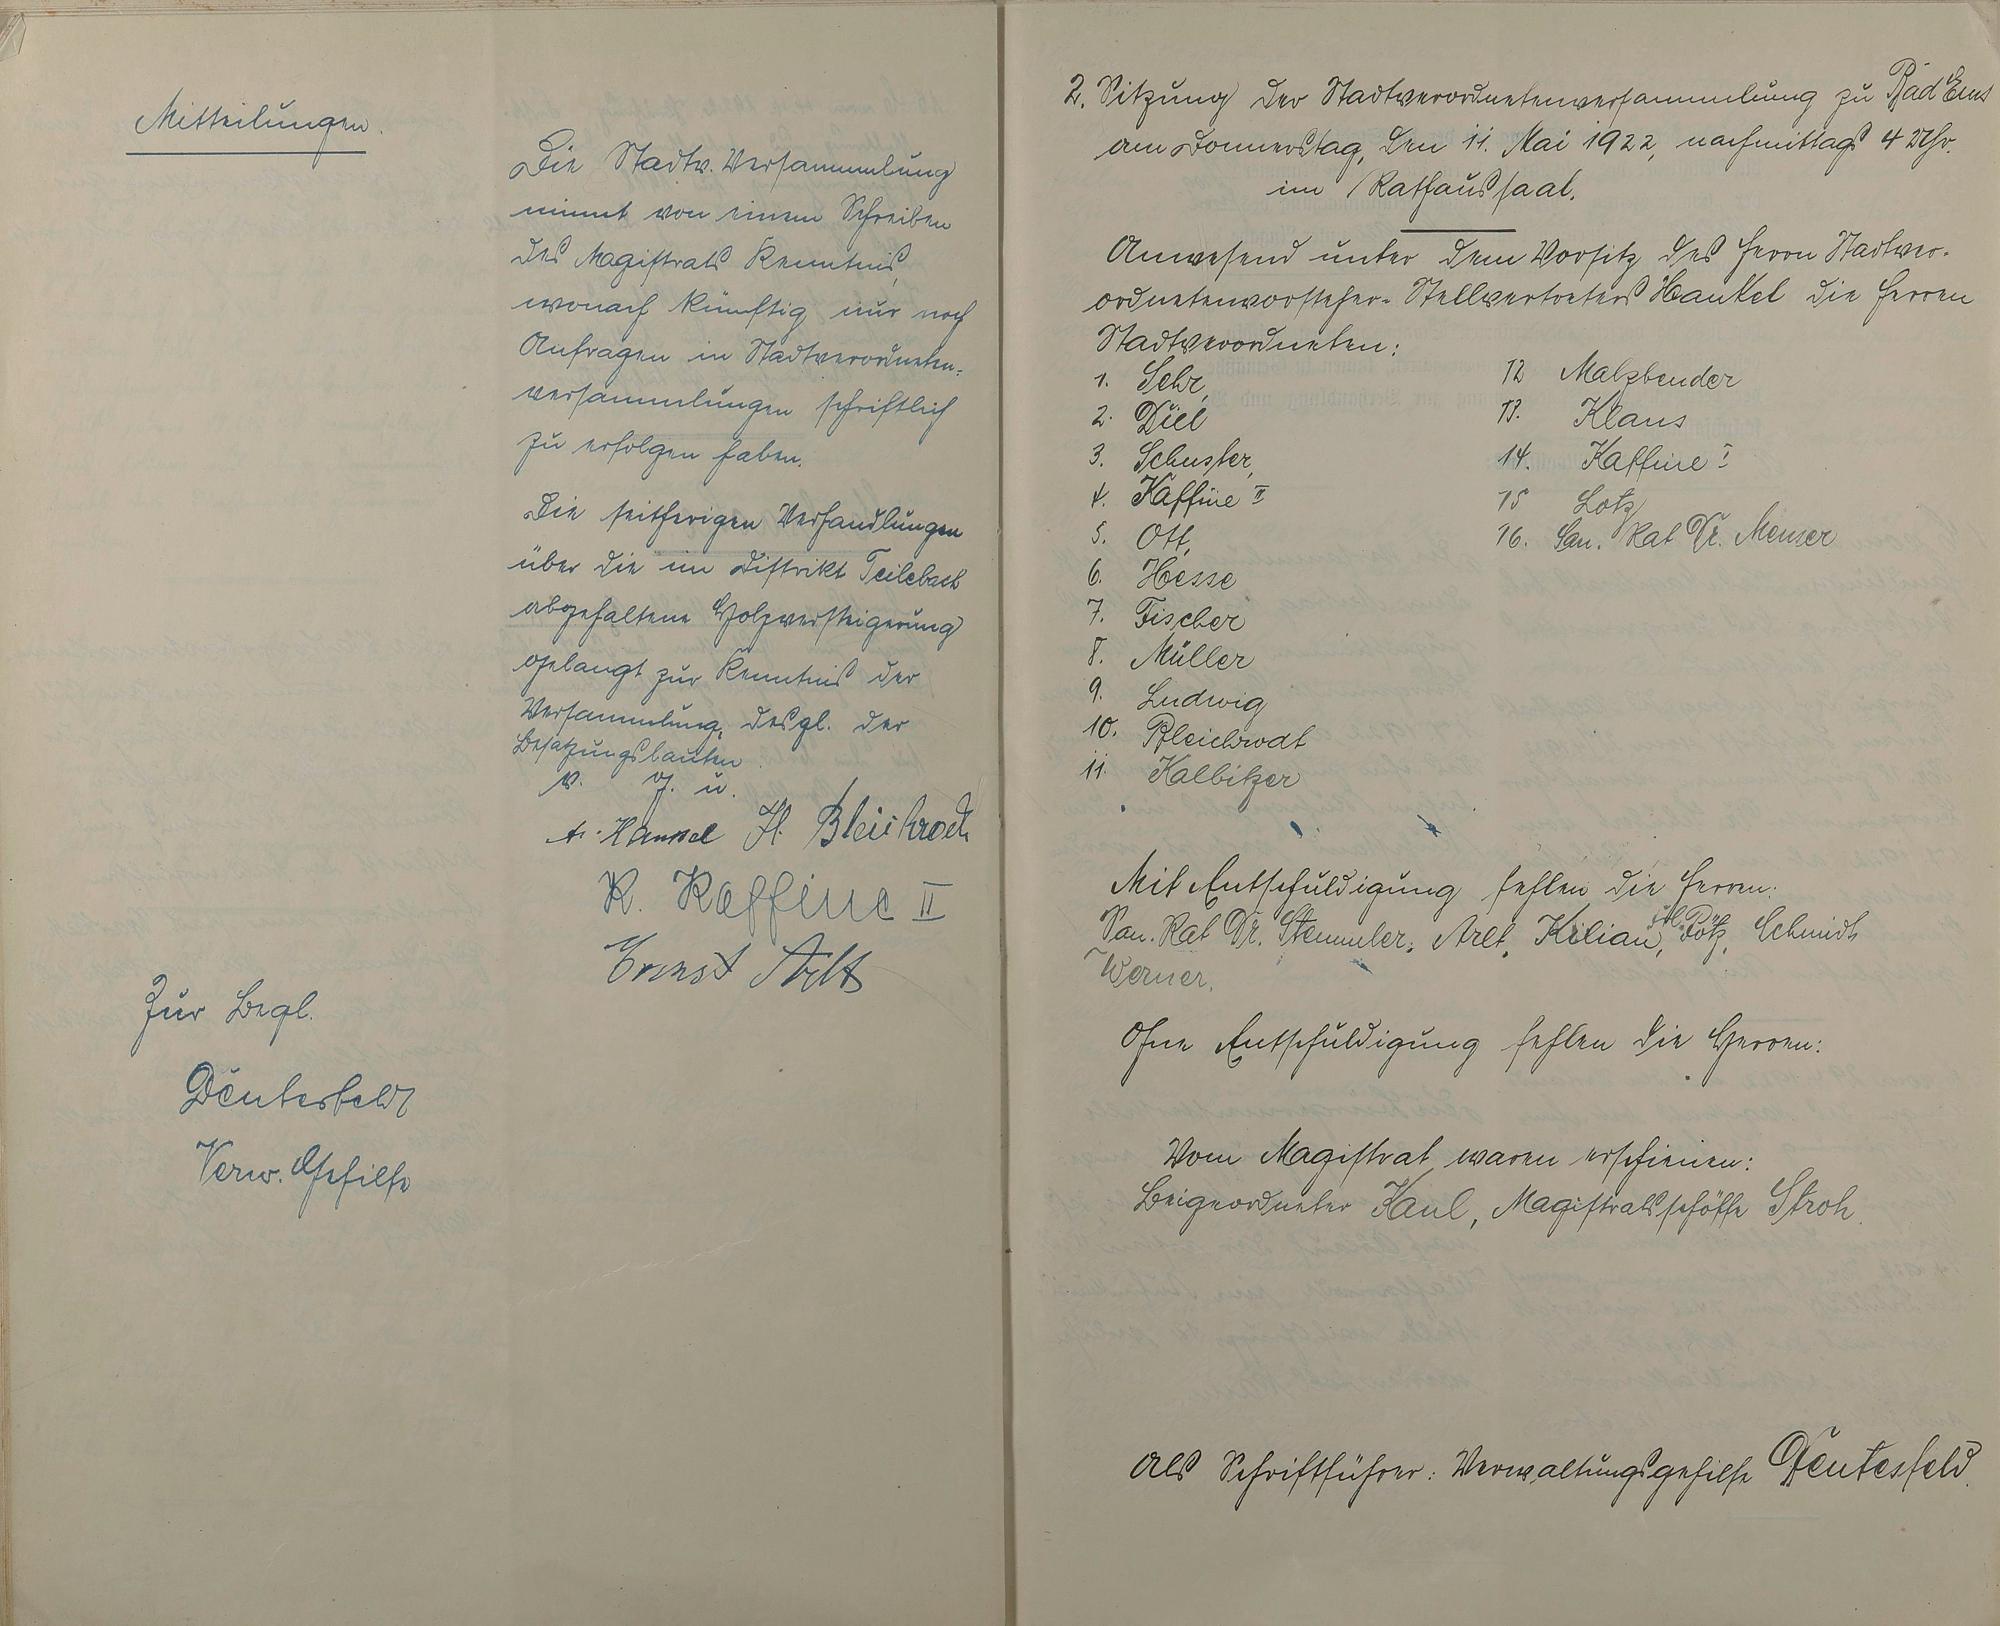 Mitteilungen.
Die Stadtv. Versammlung
nimmt von einem Schreiben
des Magistrats Kenntnis,
wonach künftig nur noch
Anfragen in Stadtverordneten-
versammlungen schriftlich
zu erfolgen haben.
Die seitherigen Verhandlungen
über die im Distrikt
abgehaltene Holzversteigerung
gelangt zur Kenntnis der
Versammlung, desgl. der
Besatzungsbauten.
v. g. u.
Hankel H. Bleichrodt
K. Kaffine II
Ernst
Zur Begl.
Deutesfeld
Verw. Gehilfe
2. Sitzung der Stadtverordnetenversammlung zu Bad Ems
am Donnerstag, den 11. Mai 1922, nachmittags 4 Uhr.
im Rathaussaal.
Anwesend unter dem Vorsitz des Herrn Stadtver-
ordnetenvorsteher-Stellvertreters Hankel die Herren
Stadtverordneten:
1. Sehr,
2. Diel
3. Schuster,
4. Kaffine II
5. Ott,
6. Hesse
7. Fischer
8. Müller
9. Ludwig
10. Bleichrodt
11. Kalbitzer
12 Malzbender
13. Klaus
14. Kaffine I
15 Lotz
16. San. Rat Dr. Menser
Mit Entschuldigung fehlen die Herren:
San. Rat Dr. Stemmler, Arlt, Kilian, Pötz, Schmidt
Werner.
Ohne Entschuldigung fehlen die Herren:
Vom Magistrat waren erschienen:
Beigeordneter Kaul, Magistratsschöffe Stroh.
Als Schriftführer: Verwaltungsgehilfe Deutesfeld.